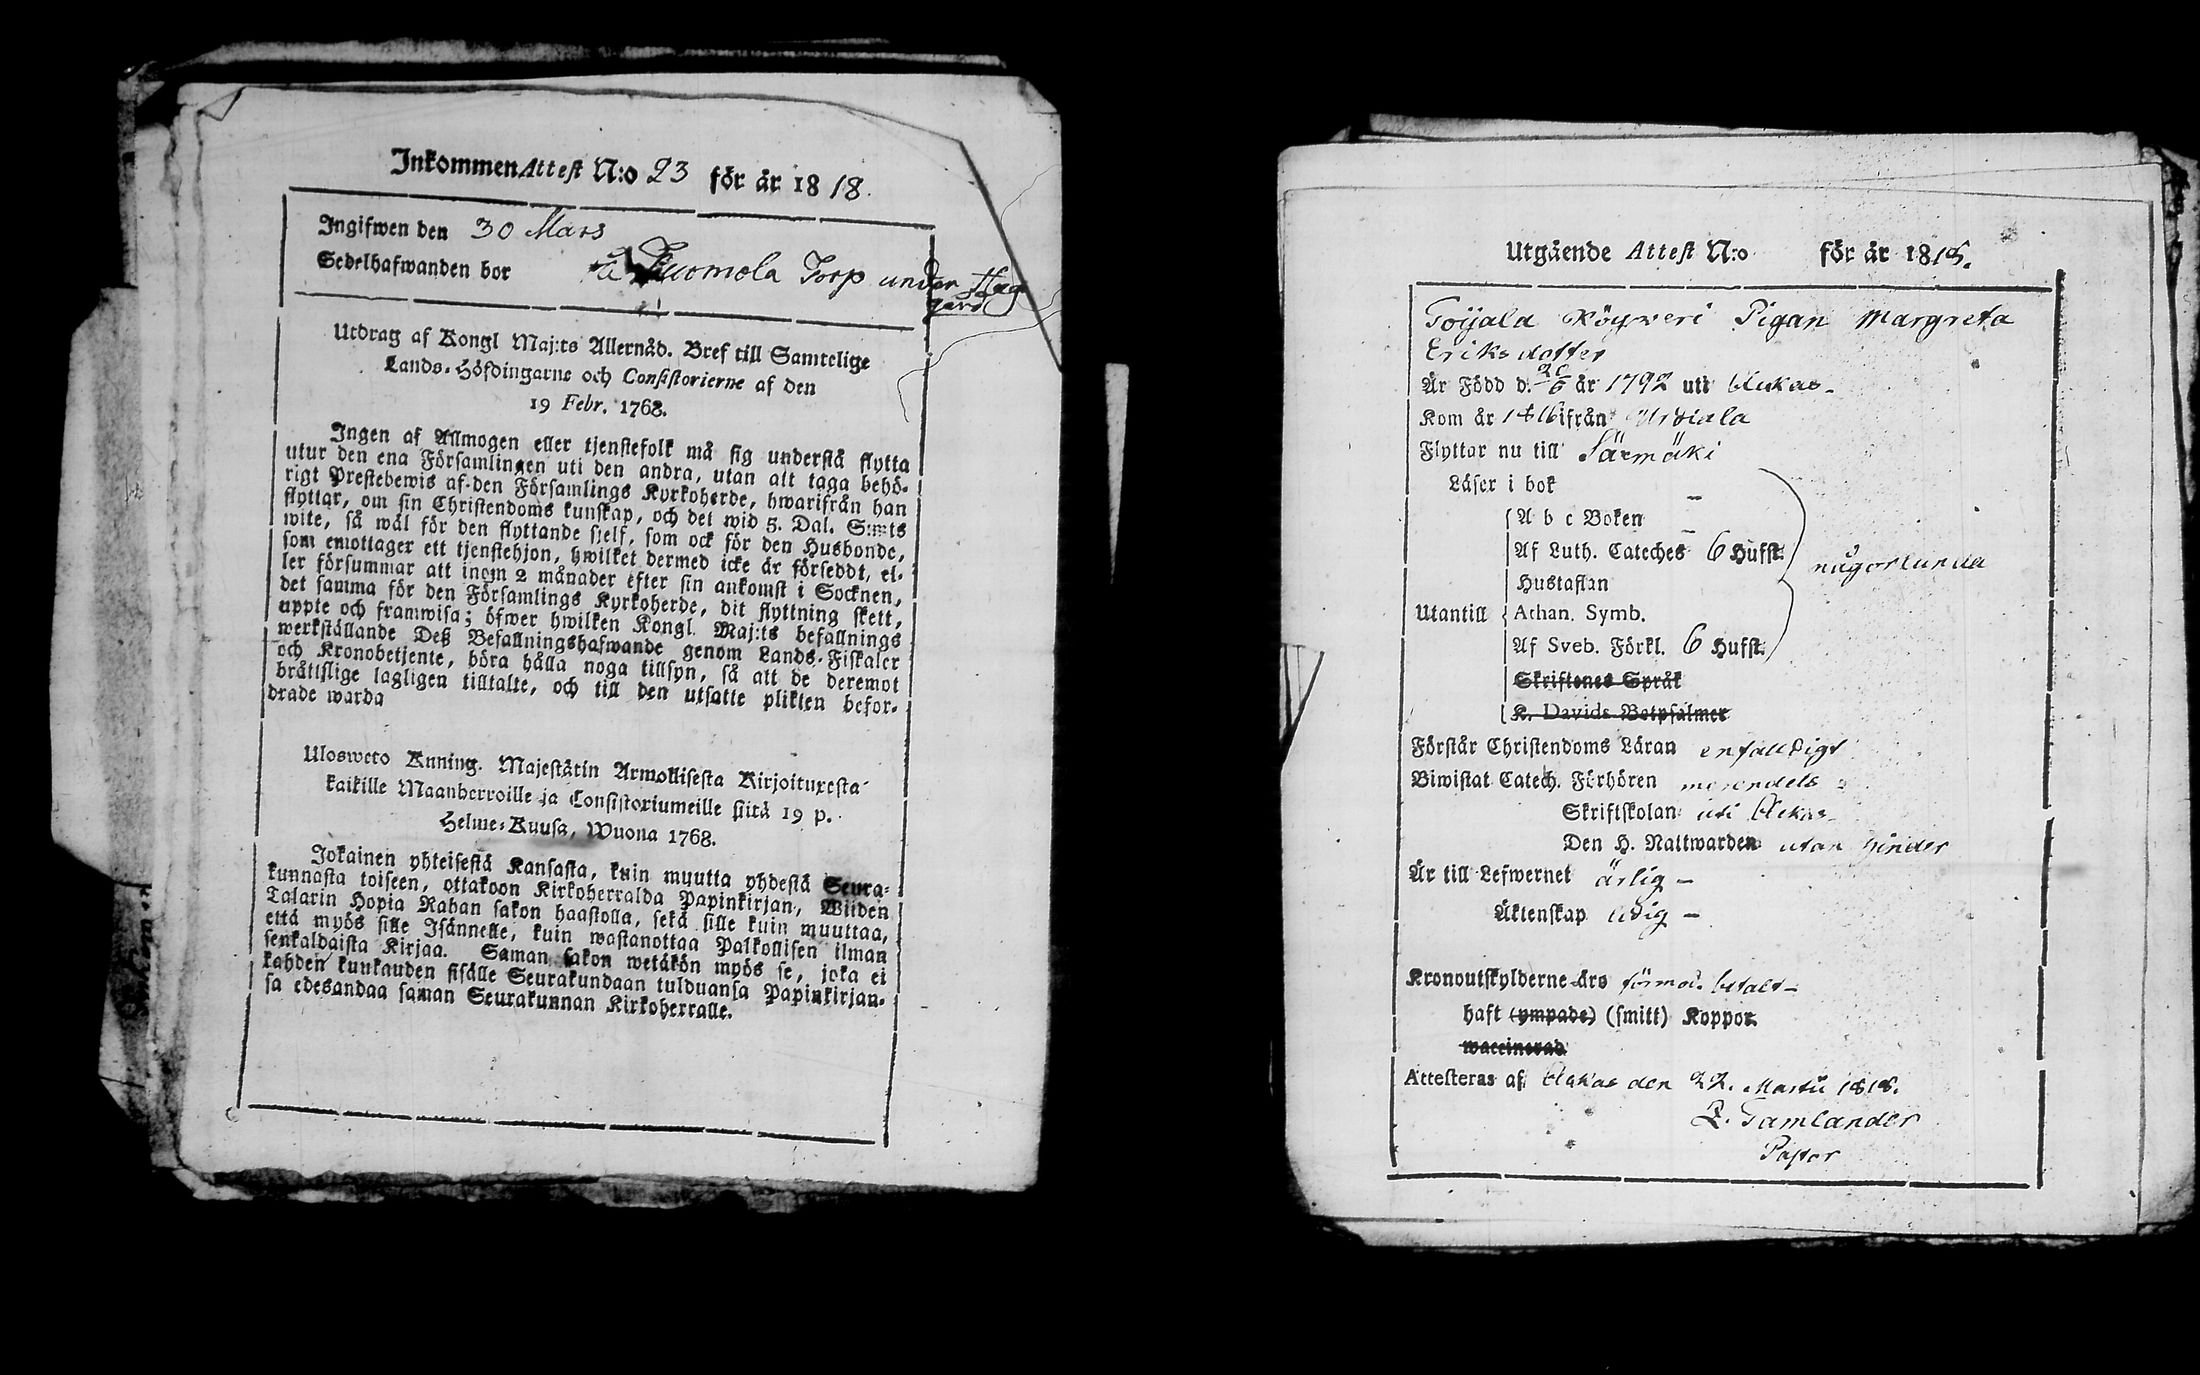 Inkommen Attest N:o 23 för år 1818.
Ingifwen den 30 Mars
Sedelhafwanden bor å Tuomola Torp under Hag
gård
Utdrag af Kongl Maj:ts Allernåd. Bref till Samtelige
Lands-Höfdingarne och Consistorierne af den
19 Febr. 1768.
Ingen af Allmogen eller tjenstefolk må sig understå flytta
utur den ena Församlingen uti den andra, utan att taga behö-
rigt Prestebewis af den Församlings Kyrkoherde, hwarifrån han
flyttar, om sin Christendoms kunskap, och det wid 5. Dal. S:mts
wite, så wäl för den flyttande sjelf, som ock för den Husbonde,
som emottager ett tjenstehjon, hwilket dermed icke är försedt, el-
ler försummar att inom 2 månader efter sin ankomst i Socknen,
det samma för den Församlings Kyrkoherde, dit flyttning skett,
uppte och framwisa; öfwer hwilken Kongl. Maj:ts befallnings
werkställande Deß Befallningshafwande genom Lands-Fiskaler
och Kronobetjente, böra hålla noga tillsyn, så att de deremot
bråtislige lagligen tilltalte, och till den utsatte plikten befor-
drade warda
Ulosweto Kuning. Majestätin Armollisesta Kirjoituxesta
kaikille Maanherroille ja Consistoriumeille siitä 19 p.
Helme-Kuusa, Wuona 1768.
Jokainen yhteisestä Kansasta, kuin muutta yhdestä Seura-
kunnasta toiseen, ottakoon Kirkoherralda Papinkirjan, Wiiden
Talarin Hopia Rahan sakon haastolla, sekä sille kuin muuttaa,
että myös sille Isännelle, kuin wastanottaa Palkollisen ilman
senkaldaista Kirjaa. Saman sakon wetäkön myös se, joka ei
kahden kuukauden sisälle Seurakundaan tulduansa Papinkirjan-
sa edesandaa saman Seurakunnan Kirkoherralle.
Utgående Attest N:o för år 1818.
Toijala Köyweri Pigan Margreta
Eriksdotter
Är Född d. 20/6 år 1792 uti Akkas
Kom år 1816 ifrån Urdiala
Flyttar nu till Särmäki
Läser i bok
A b c Boken
Af Luth. Cateches 6 Hufst.
någorlunda
Hustaflan
Utantill Athan. Symb.
Af Sveb. Förkl. 6 Hufst.
Skriftenes Språk
K. Davids Botpsalmer
Förstår Christendoms Läran enfaldigt
Biwistat Catech. Förhören merendels
Skriftskolan uti Akkas
Den H. Nattwarden utan hinder
Är till Lefwernet ärlig -
Äktenskap ledig -
Kronoutskylderne äro förmod. betalt -
haft (ympade) (smitt) Koppor.
waccinerad
Attesteras af Akkas den 22. Martii 1818.
Z. Gamlander
Pastor